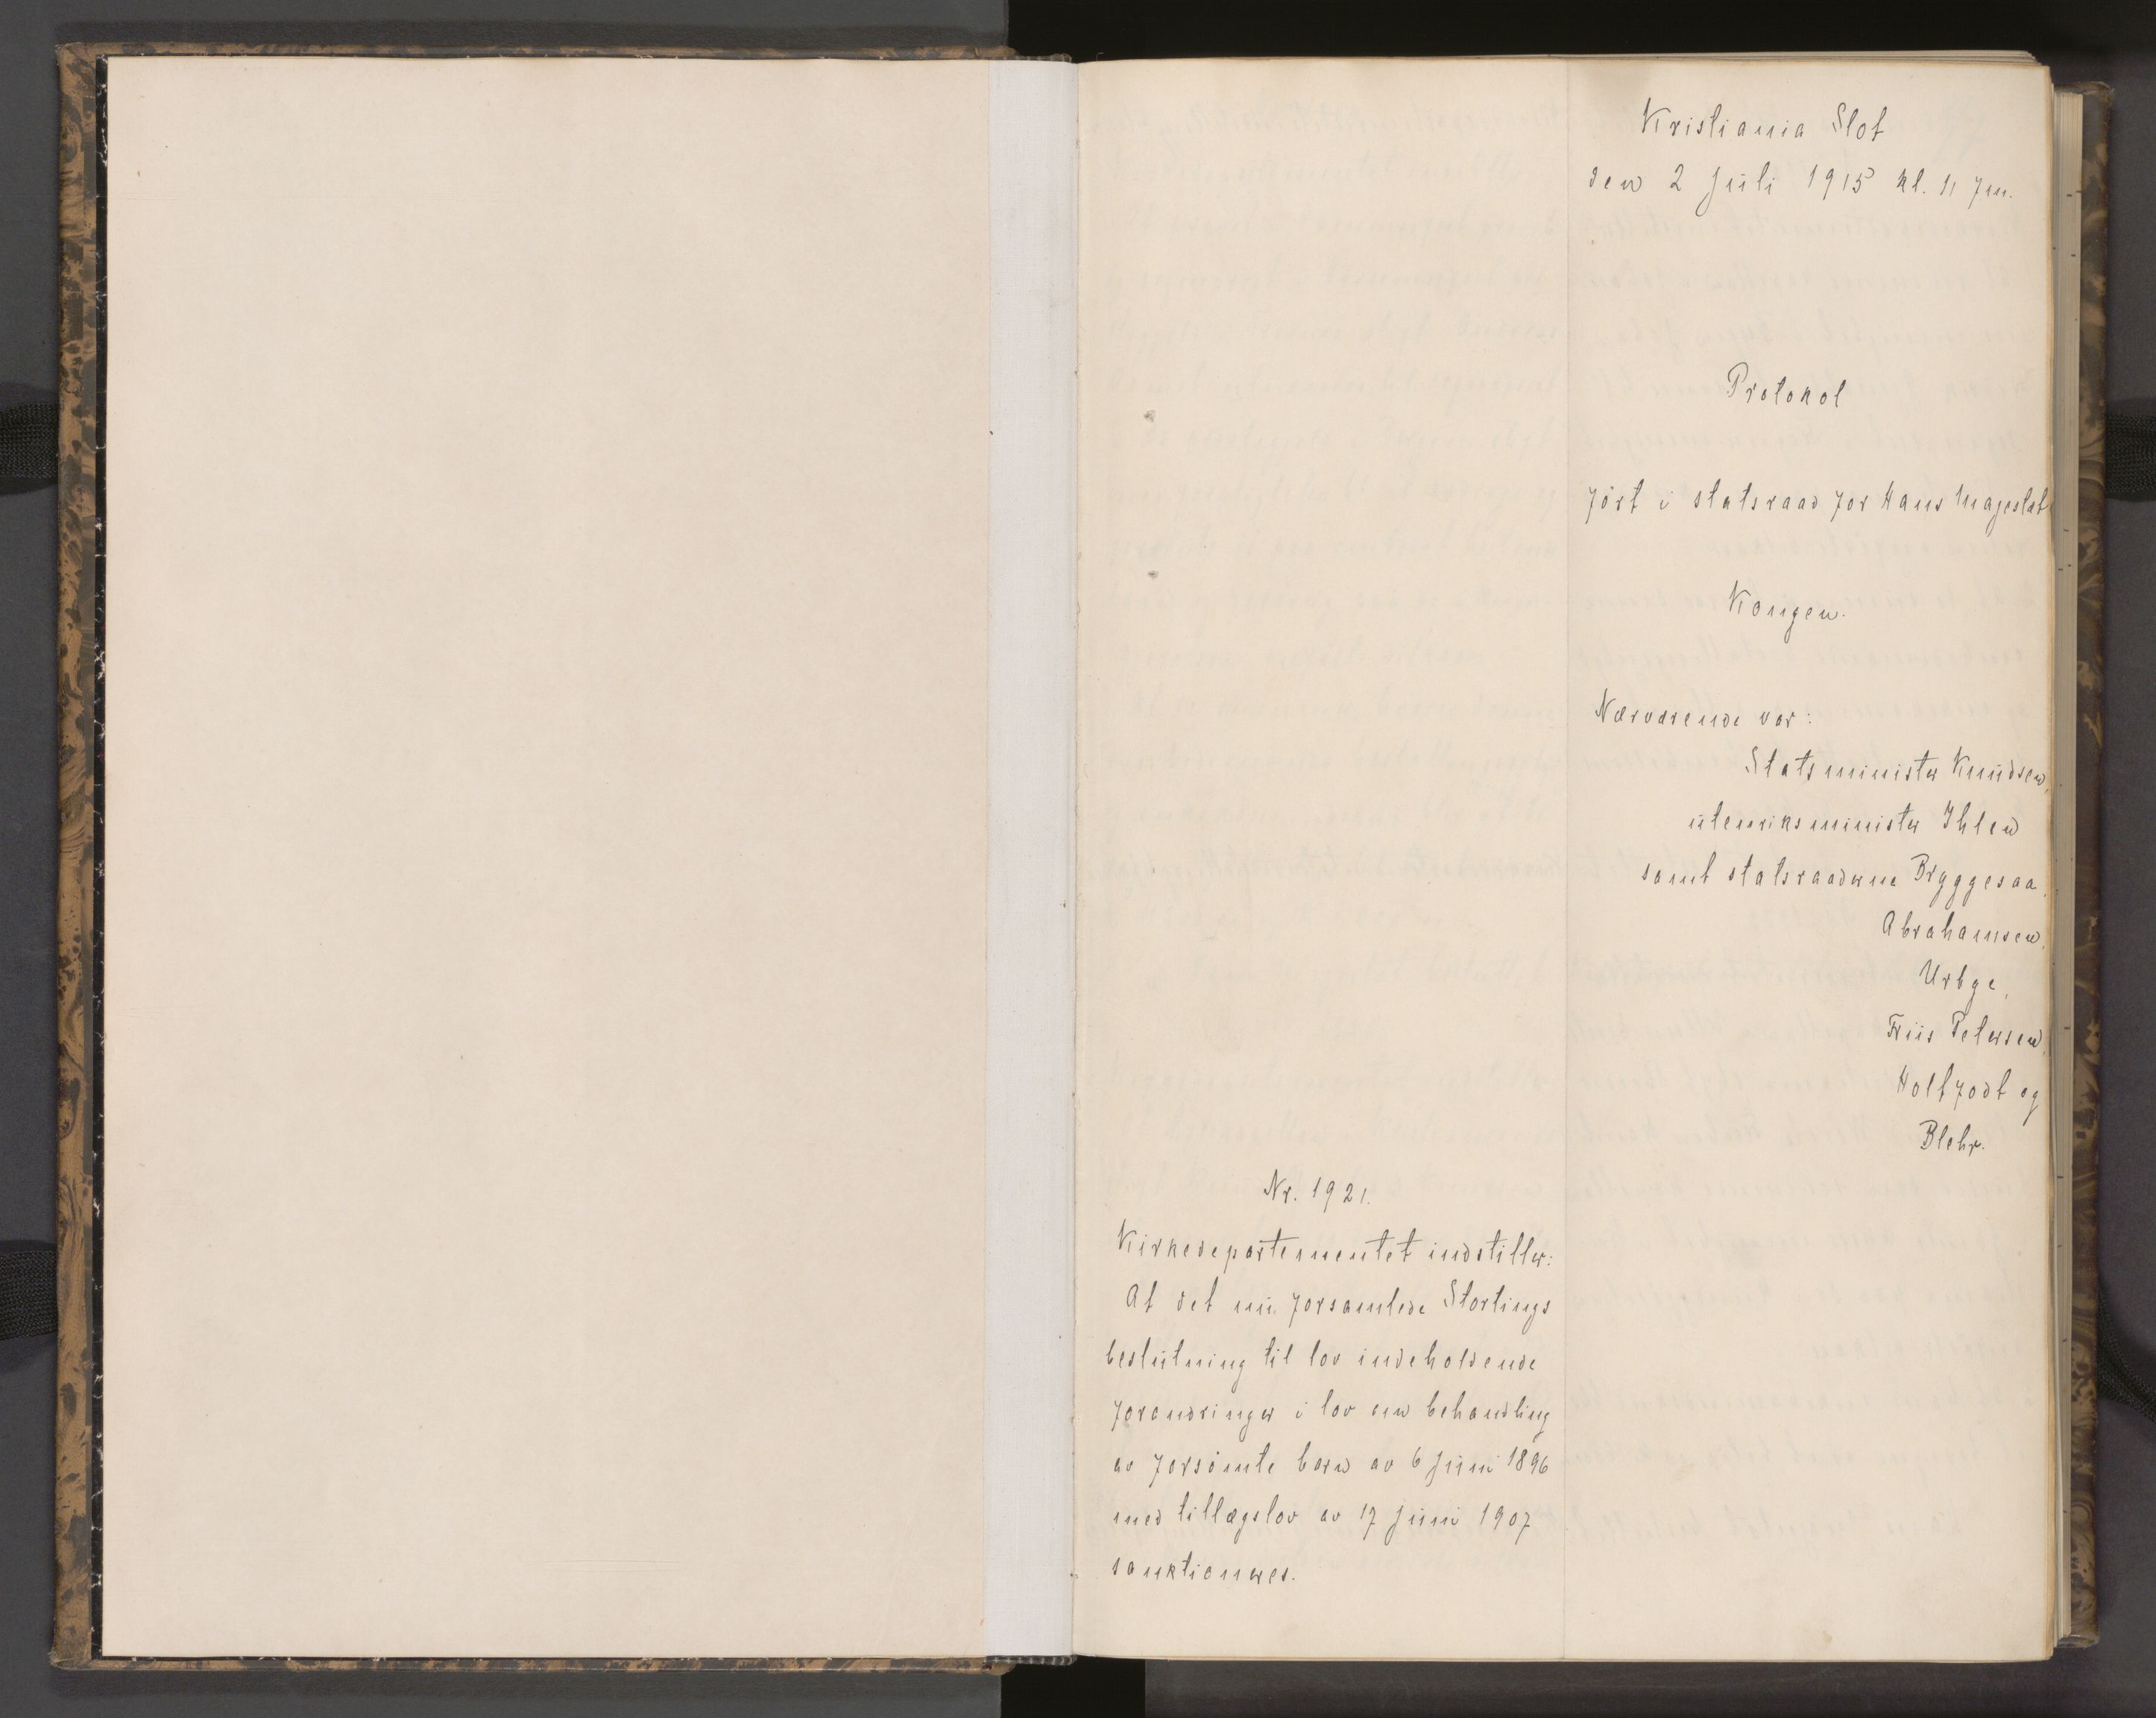 Kristiania Slot
den 2 juli 1915 kl. 11 fm.
Protokol
ført i statsraad for Hans Majestæt
Kongen.
Nærværende var:
Statsminister Knudsen,
utenriksminister Ihlen
samt statsraaderne Bryggesaa,
Abrahamsen,
Urbye,
Friis Petersen,
Holtfodt og
Blehr.
Nr. 1921.
Kirkedepartementet indstiller:
At det nu forsamlede Stortings
beslutning til lov indeholdende
forandringer i lov om behandling
av forsømte barn av 6 juni 1896
med tillægslov av 17 juni 1907
sanktioneres.